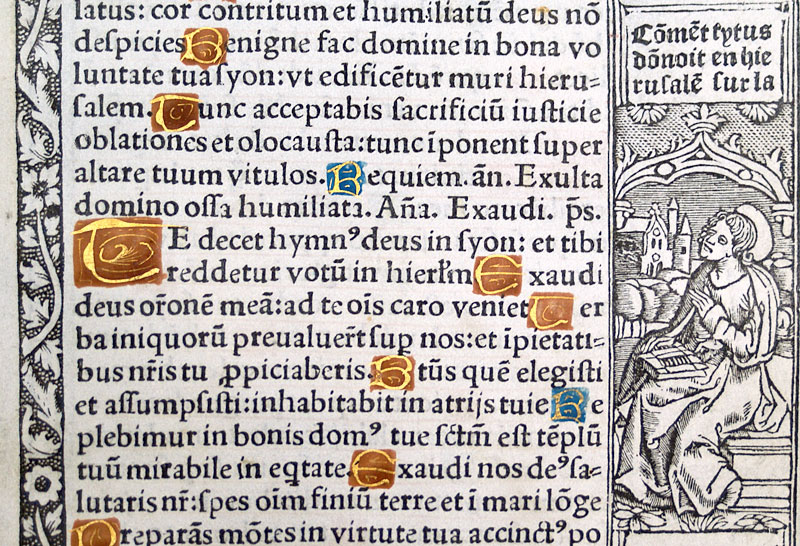 latus: cor contritum et humiliatū deus nō
despicies Benigne fac domine in bona vo
luntate tua syon: vt edificētur muri hieru=
salem. Tunc acceptabis sacrificiū iusticie
oblationes et olocausta: tunc īponent super
altare tuum vitulos. Requiem. ān. Exulta
domino ossa humiliata. Aña. Exaudi. p̄s.
TE decet hymnꝰ deus in syon: et tibi
reddetur votū in hierl̄m Exaudi
deus or̄onē meā: ad te oīs caro veniet Uer
ba iniquorū preualuer̄t sup nos: et īpietati=
bus nr̄is tu ꝓpiciaberis. Btūs quē elegisti
et assumpsisti: inhabitabit in atrijs tuis Re
plebimur in bonis domꝰ tue sctm̄ est tēplū
tuū mirabile in eqtate. Exaudi nos deꝰ sa=
lutaris nr̄: spes oīm finiū terre et ī mari lōge
Preparās mōtes in virtute tua accinctꝰ po
Cōmēt tytus
dōnoit en hie
rusalē sur la